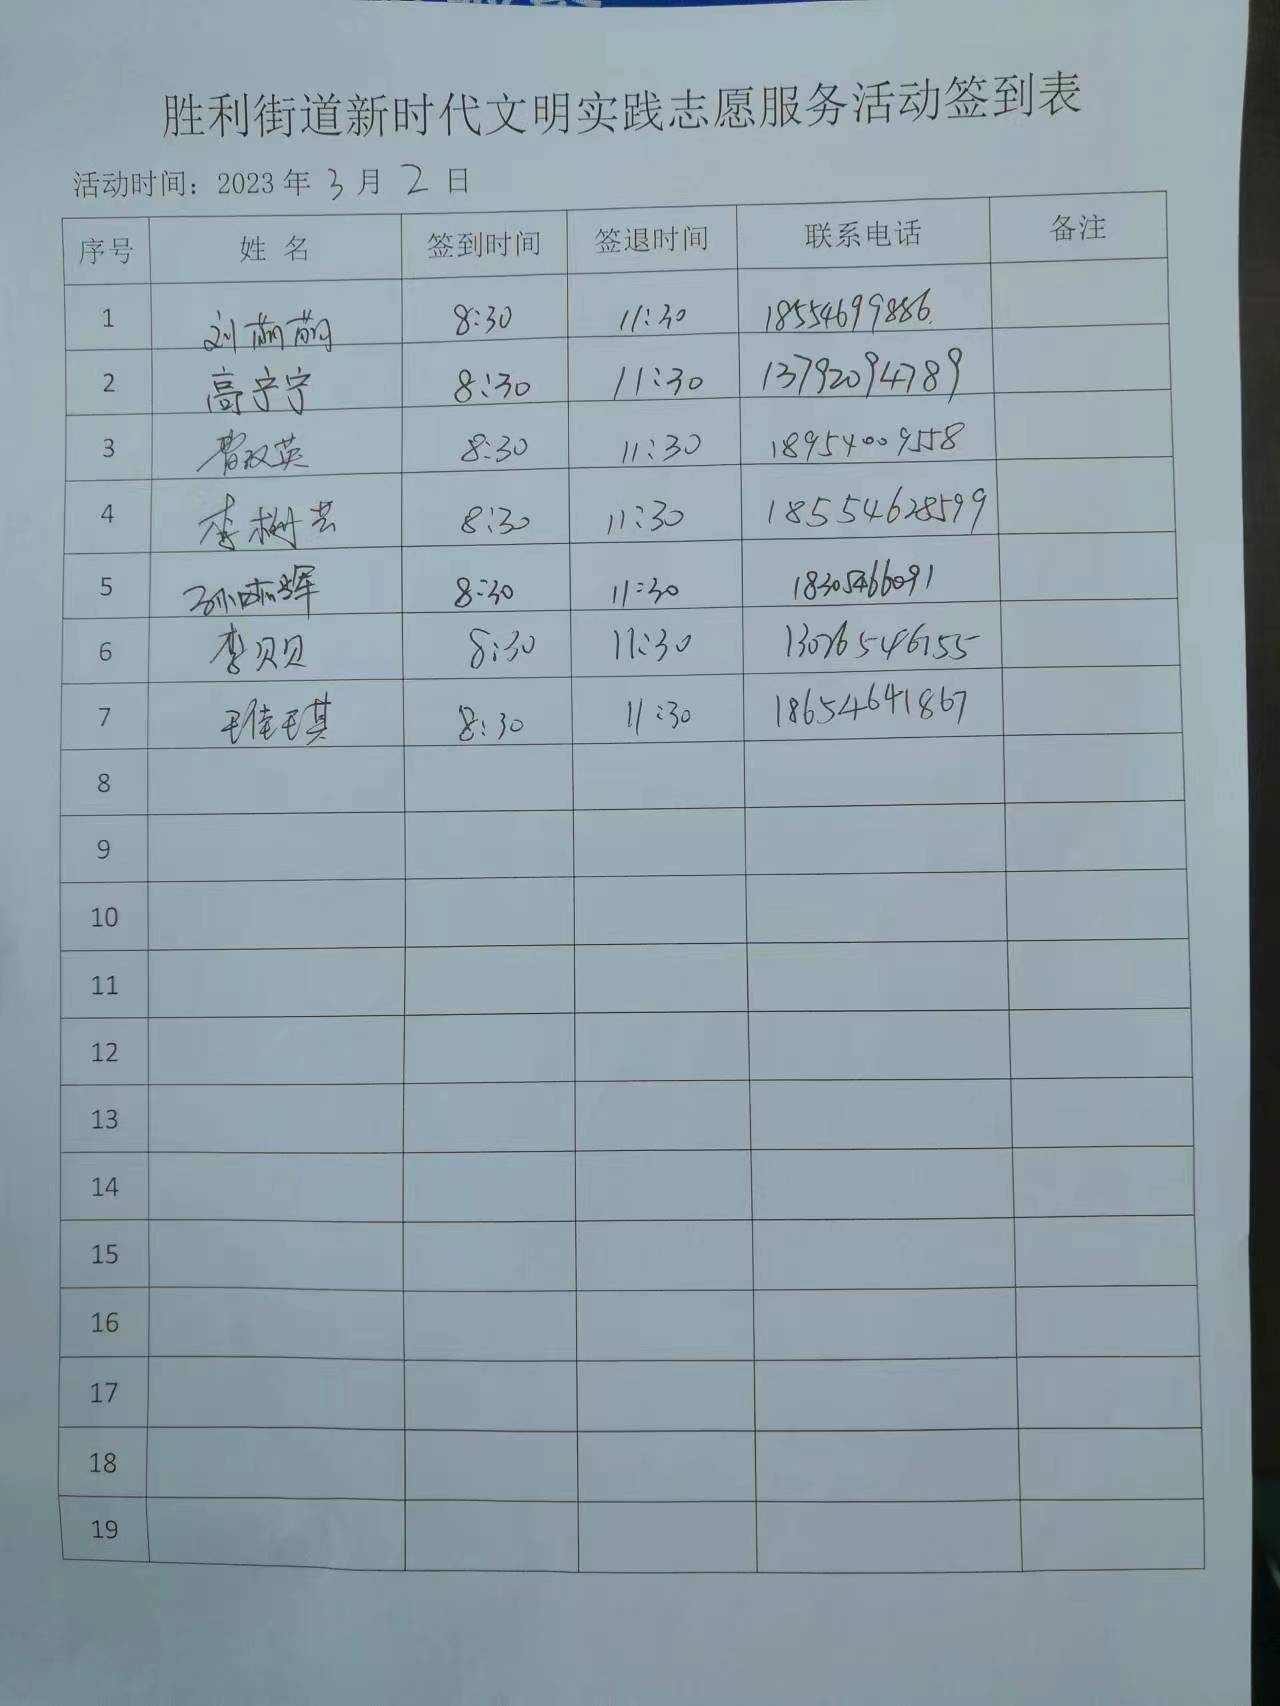 胜利街道新时代文明实践志愿服务活动签到表
活动时间：2023年 3 月 2 日
序号 姓 名 签到时间 签退时间 联系电话 备注
1 刘萌萌 8:30 11:30 18554699886
2 高宁宁 8:30 11:30 13792094789
3 曹双英 8:30 11:30 18954009558
4 李树芸 8:30 11:30 18554628599
5 8:30 11:30 18305466091
6 李贝贝 8:30 11:30 13076546155
7 王佳琪 8:30 11:30 18654641867
8
9
10
11
12
13
14
15
16
17
18
19